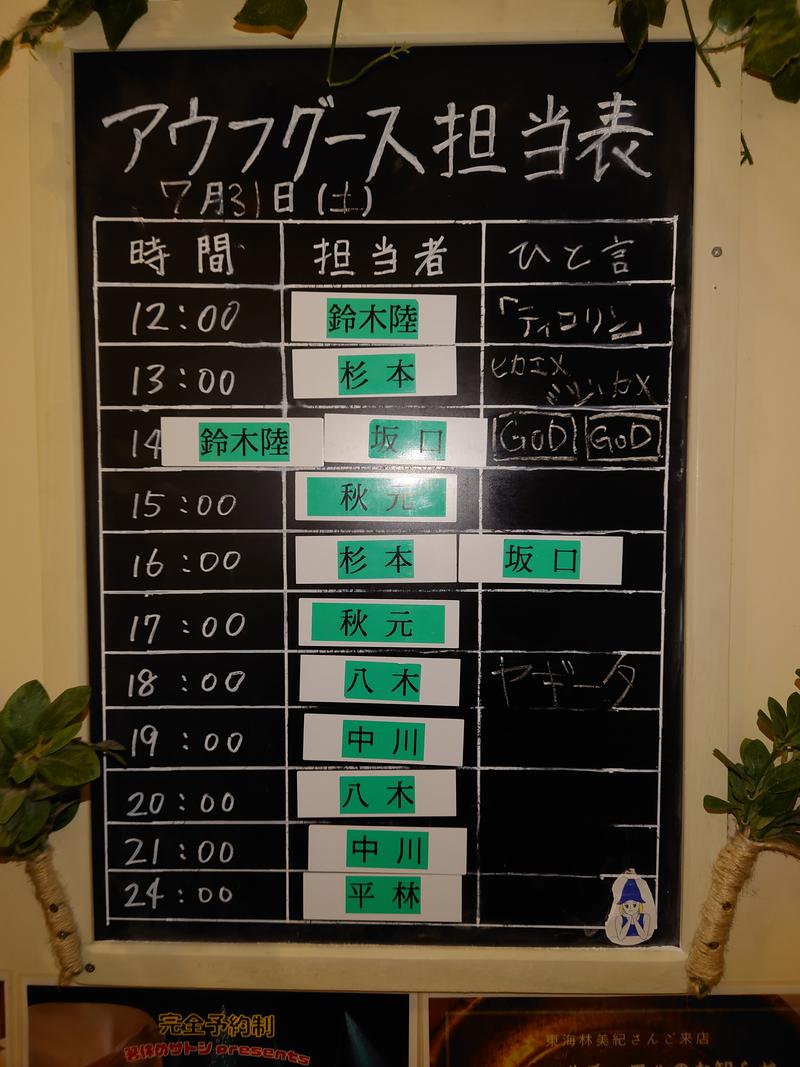 アウフグース担当表
7月31日(土)
時間 担当者 ひと言
12:00 鈴木陸 「ティコリン」
13:00 杉本
14 鈴木陸 坂口 GOD GOD
15:00 秋元
16:00 杉本 坂口
17:00 秋元
18:00 八木 ヤギータ
19:00 中川
20:00 八木
21:00 中川
24:00 平林
完全予約制
東海林美紀さんご来店
presents